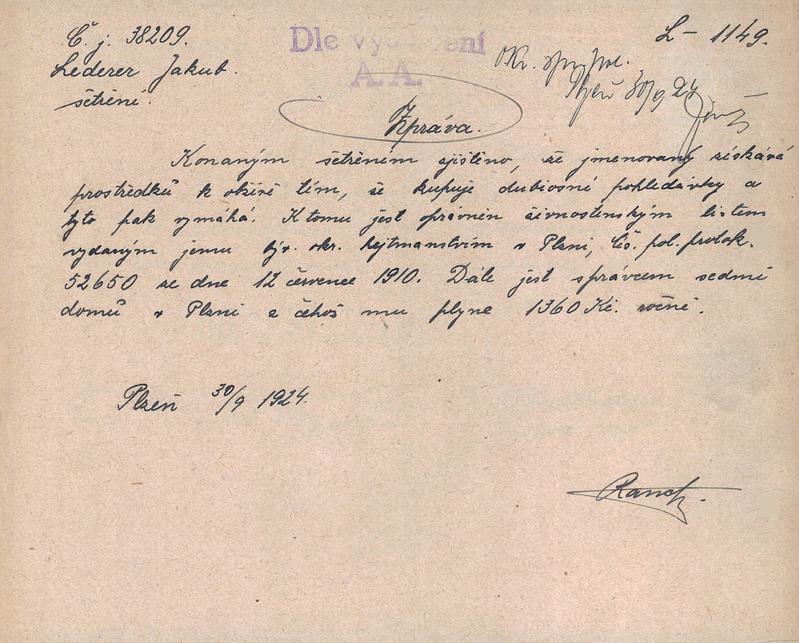 Č. j. 38209.
L – 1149.
Lederer Jakub.
šetření.
Dle vyřízení
A. A.
Okr. spr. pol.
30/9 24
Zpráva.
Konaným šetřením zjištěno, že jmenovaný získává
prostředků k obživě tím, že kupuje dubiosní pohledávky a
tyto pak vymáhá. K tomu jest oprávněn živnostenským listem
vydaným jemu býv. okr. hejtmanstvím v Plzni, Čís. pol. protok.
52650 ze dne 12 července 1910. Dále jest správcem sedmi
domů v Plzni z čehož mu plyne 1360 Kč. ročně.
Plzeň 30/9 1924.